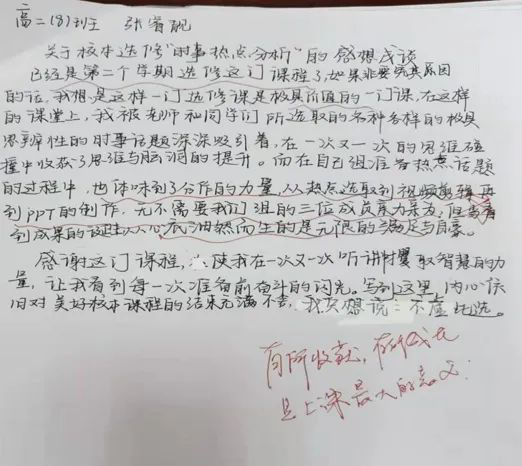 高二(8)班 张睿靓
关于校本选修“时事热点分析”的感想浅谈
已经是第二个学期选修这门课程了，如果非要究其原因
的话，我想是这样一门选修课是极具价值的一门课，在这样
的课堂上，我被老师和同学们所选取的各种各样的极具
思辨性的时事话题深深吸引着，在一次又一次的思维碰
撞中收获了思维与脑洞的提升。而在自己组准备热点话题
的过程中，也体味到了合作的力量，从热点选取到视频剪辑再
到PPT的制作，无不需要我们组的三位成员亲力亲为，但当看
到成果的诞生从心底油然而生的是无限的满足与自豪。
感谢这门课程，使我在一次又一次听讲时汲取智慧的力
量，让我看到每一次准备前奋斗的闪光。写到这里，内心依
旧对美好校本课程的结束充满不舍，我只想说：不虚此选。
有所收获，有所成长
是上课最大的意义！